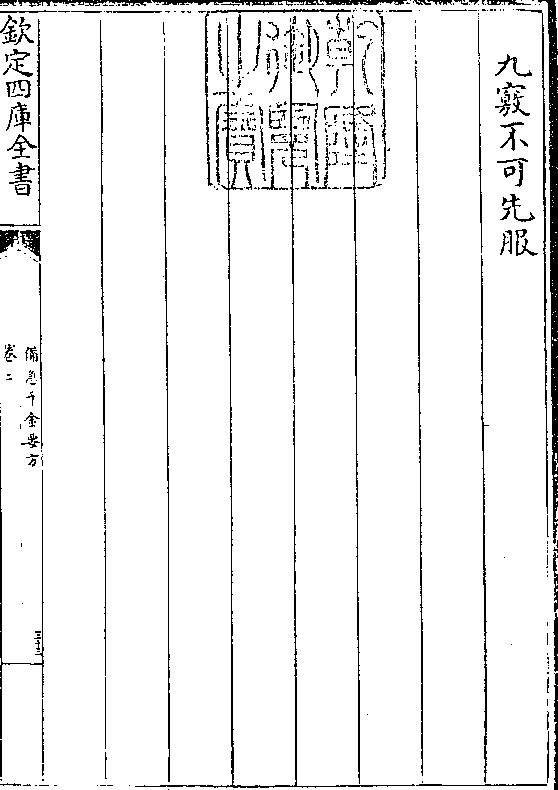 九竅不可先服
乾隆御覽之寶
欽定四庫全書
備急千金要方
卷二